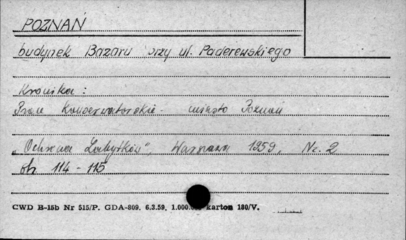 POZNAŃ
budynek Bazaru przy ul. Paderewskiego
Kronika:
Prace Konserwatorskie - miasto Poznań
"Ochrona Zabytków", Warszawa 1959, Nr. 2
str. 114 - 115
CWD B-15b Nr 515/P. GDA-809. 6.2.59. 1.000.000 karton 180/V.